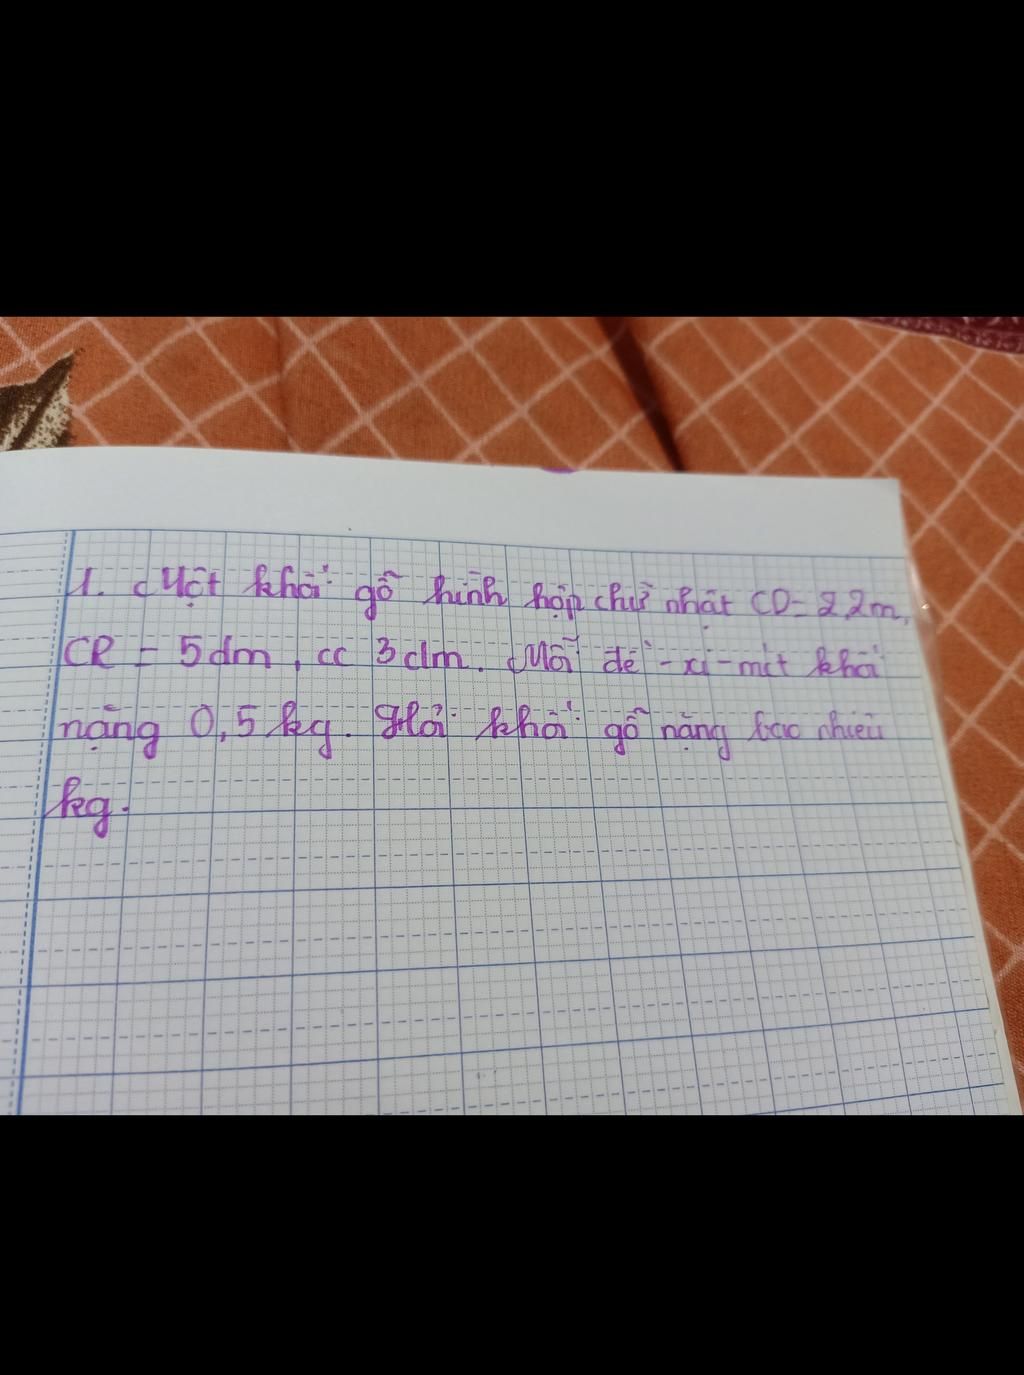 1. Một khối gỗ hình hộp chữ nhật CD = 2,2m,
CR = 5dm, cc 3dm. Mỗi đề-xi-mít khối
nặng 0,5kg. Hỏi khối gỗ nặng bao nhiêu
kg.